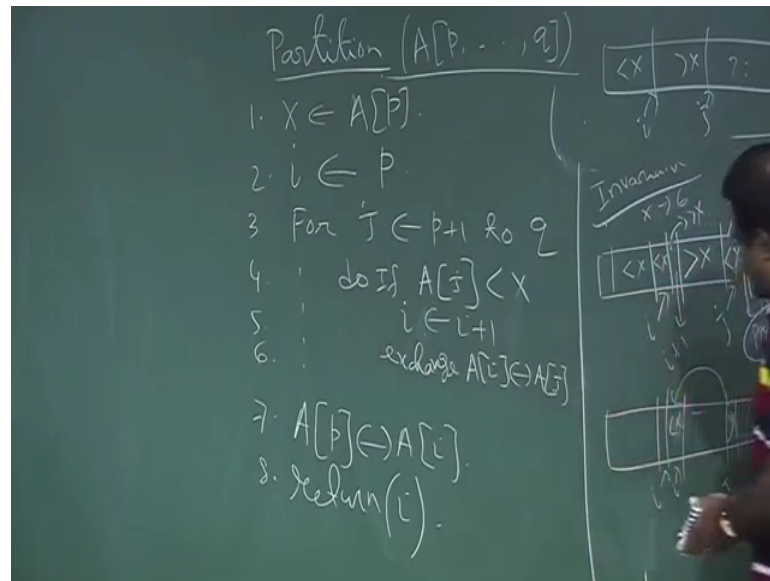 Partition (A[p, ..., q])
1. X ← A[p].
2. i ← p.
3 For j ← p+1 to q
4. do If A[j] < X
5. i ← i+1
6. exchange A[i] ↔ A[j]
7. A[p] ↔ A[i].
8. return(i).
<x >x ?
i j
Invariant
x → 6
<x <x >x <x
i j
i